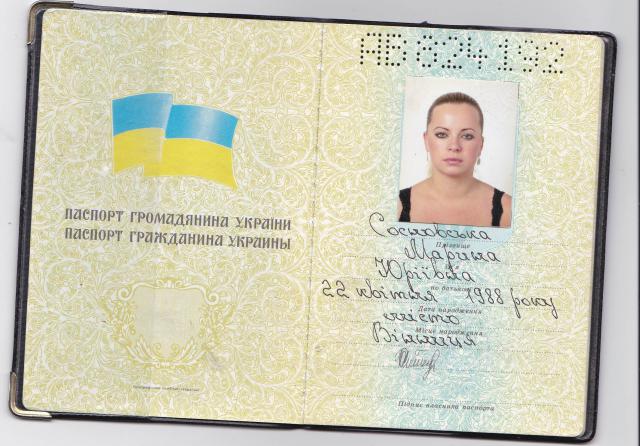 ПАСПОРТ ГРОМАДЯНИНА УКРАЇНИ
ПАСПОРТ ГРАЖДАНИНА УКРАИНЫ
АВ 824192
Прізвище
Марина
Юріївна
по батькові
22 квітня 1988 року
Дата народження
місто
Місце народження
Вінниця
Підпис власника паспорта